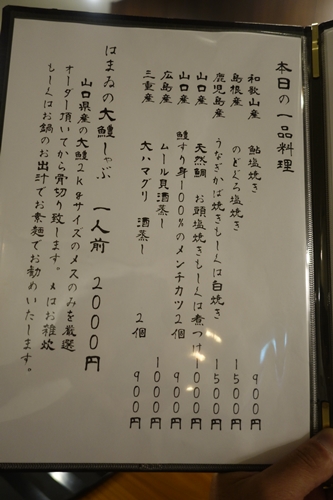 本日の一品料理
和歌山産 鮎塩焼き 900円
島根産 のどぐろ塩焼き 1500円
鹿児島産 うなぎかば焼きもしくは白焼き 1500円
山口産 天然鯛 お頭塩焼きもしくは煮つけ 1000円
山口産 鱧すり身100%のメンチカツ2個 900円
広島産 ムール貝酒蒸し 1000円
三重産 大ハマグリ 酒蒸し 2個 900円
はまゐの大鱧しゃぶ 一人前 2000円
山口県産の大鱧2kgサイズのメスのみを厳選
オーダー頂いてから骨切り致します。〆はお雑炊
もしくはお鍋のお出汁でお素麺でお勧めいたします。